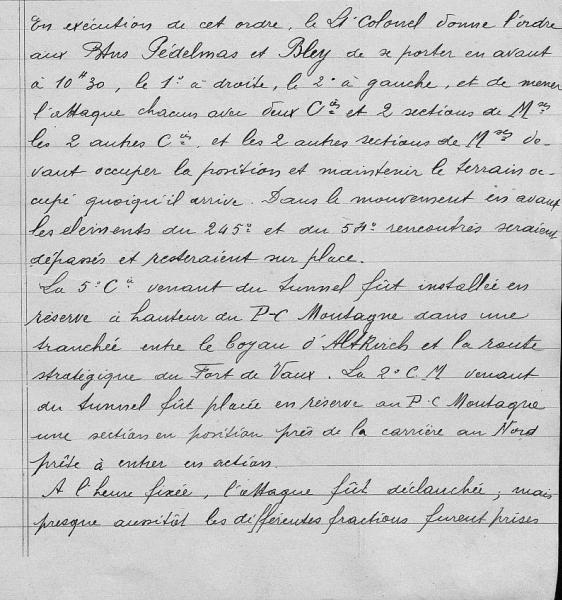 En exécution de cet ordre, le Lt Colonel donne l'ordre
aux Btns Pédelmas et Bley de se porter en avant
à 10H30, le 1° à droite, le 2° à gauche, et de mener
l'attaque chacun avec deux Cies et 2 sections de Mses
les 2 autres Cies, et les 2 autres sections de Mses de-
vant occuper la position et maintenir le terrain oc-
cupé quoiqu'il arrive. Dans le mouvement en avant
les elements du 245° et du 54° rencontrés seraient
dépassés et resteraient sur place.
La 5° Cie venant du tunnel fût installée en
réserve à hauteur du P-C Montagne dans une
tranchée entre le boyau d'Altkirch et la route
stratégique du Fort de Vaux. La 2° C.M venant
du tunnel fût placée en réserve au P.C Montagne
une section en position près de la carrière au Nord
prête à entrer en action.
A l'heure fixée, l'attaque fût déclanchée, mais
presque aussitôt les différentes fractions furent prises